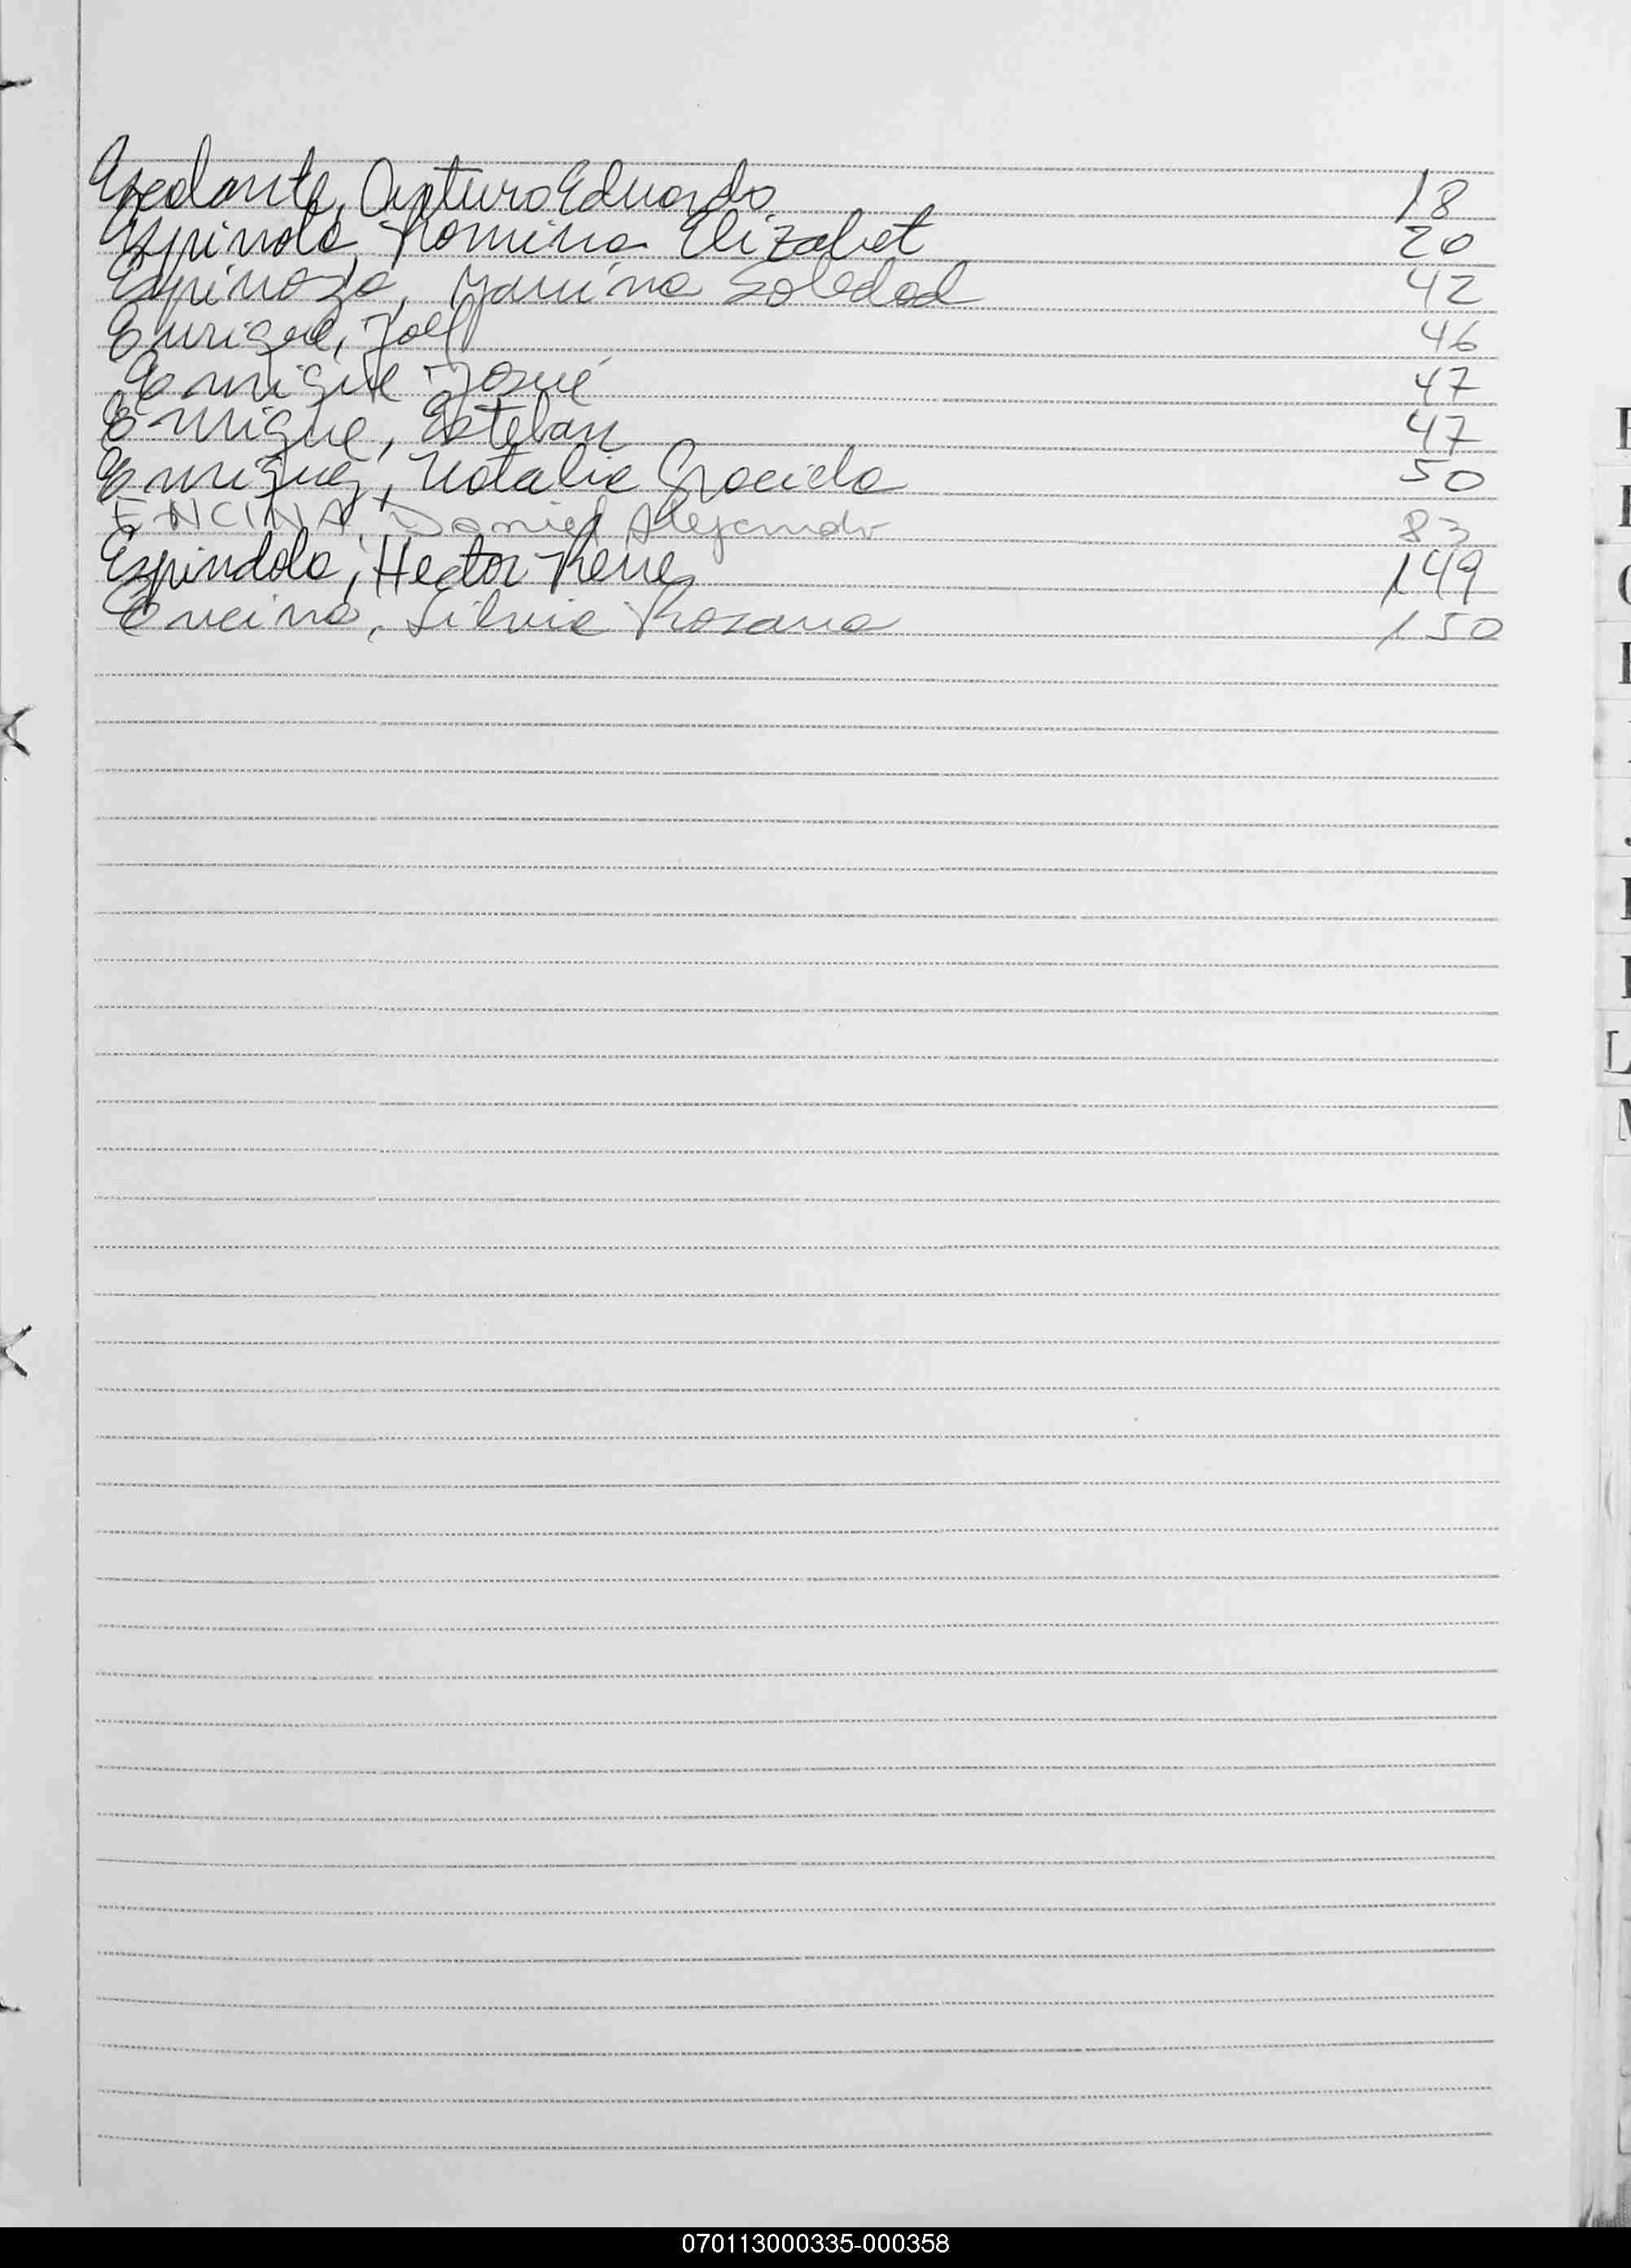 Arturo Eduardo 18
Espinola, Romina Elizabet 20
Espinoza, Yanina Soledad 42
Enrique, Joel 46
Enrique Josué 47
Enrique, Esteban 47
Enriquez, Natalia Graciela 50
ENCINA, Daniel Alejandro 83
Espindola, Hector Rene 149
Encina, Silvia Rosana 150
070113000335-000358